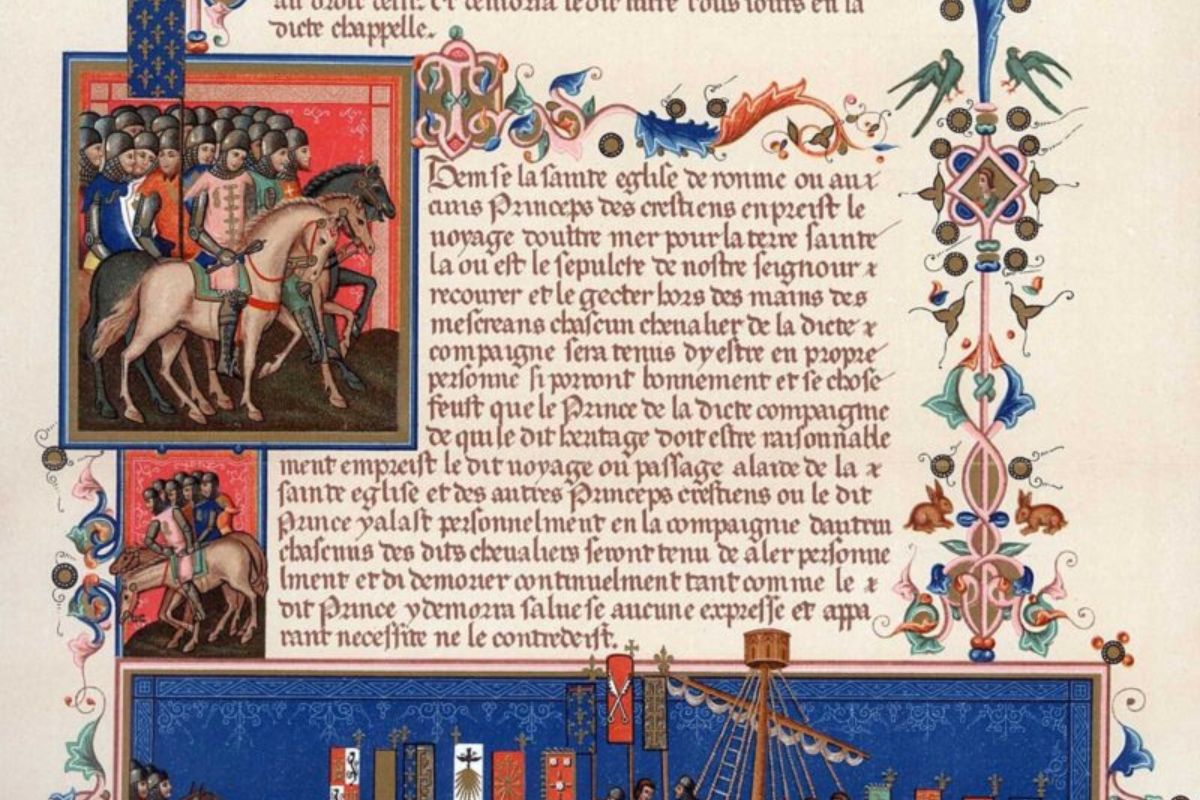 au droit ceur. et demorra ledit titre tous iours en la
dicte chappelle.
Item se la sainte eglise de ronme ou aux
cuns Princeps des crestiens enpreist le
uoyage doultre mer pour la terre sainte
la ou est le sepulcre de nostre seignour
recourer et le gecter hors des mains des
mescreans chascun cheualier de la dicte
compaigne sera tenus dy estre en propre
personne si porront bonnement et se chose
feust que le Prince de la dicte compaigne
de qui le dit heritage doit estre raisonnable
ment empreist le dit uoyage ou passage a laide de la
sainte eglise et des autres Princeps crestiens ou le dit
Prince y alast personnelment en la compaignie dautrui
chascuns des dits cheualiers seront tenu de aler personne
lment et di demorer continuelment tant comme le
dit Prince y demorra salue se aucune expresse et appa
rant necessite ne le contredeist.